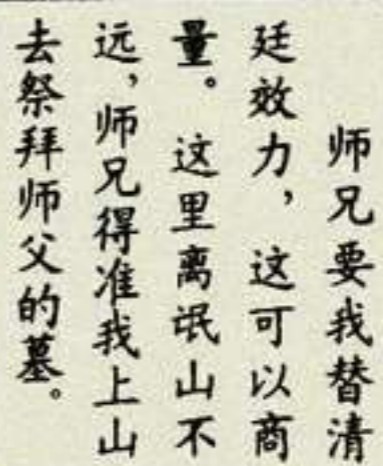 师兄要我替清
廷效力，这可以商
量。这里离氓山不
远，师兄得准我上山
去祭拜师父的墓。